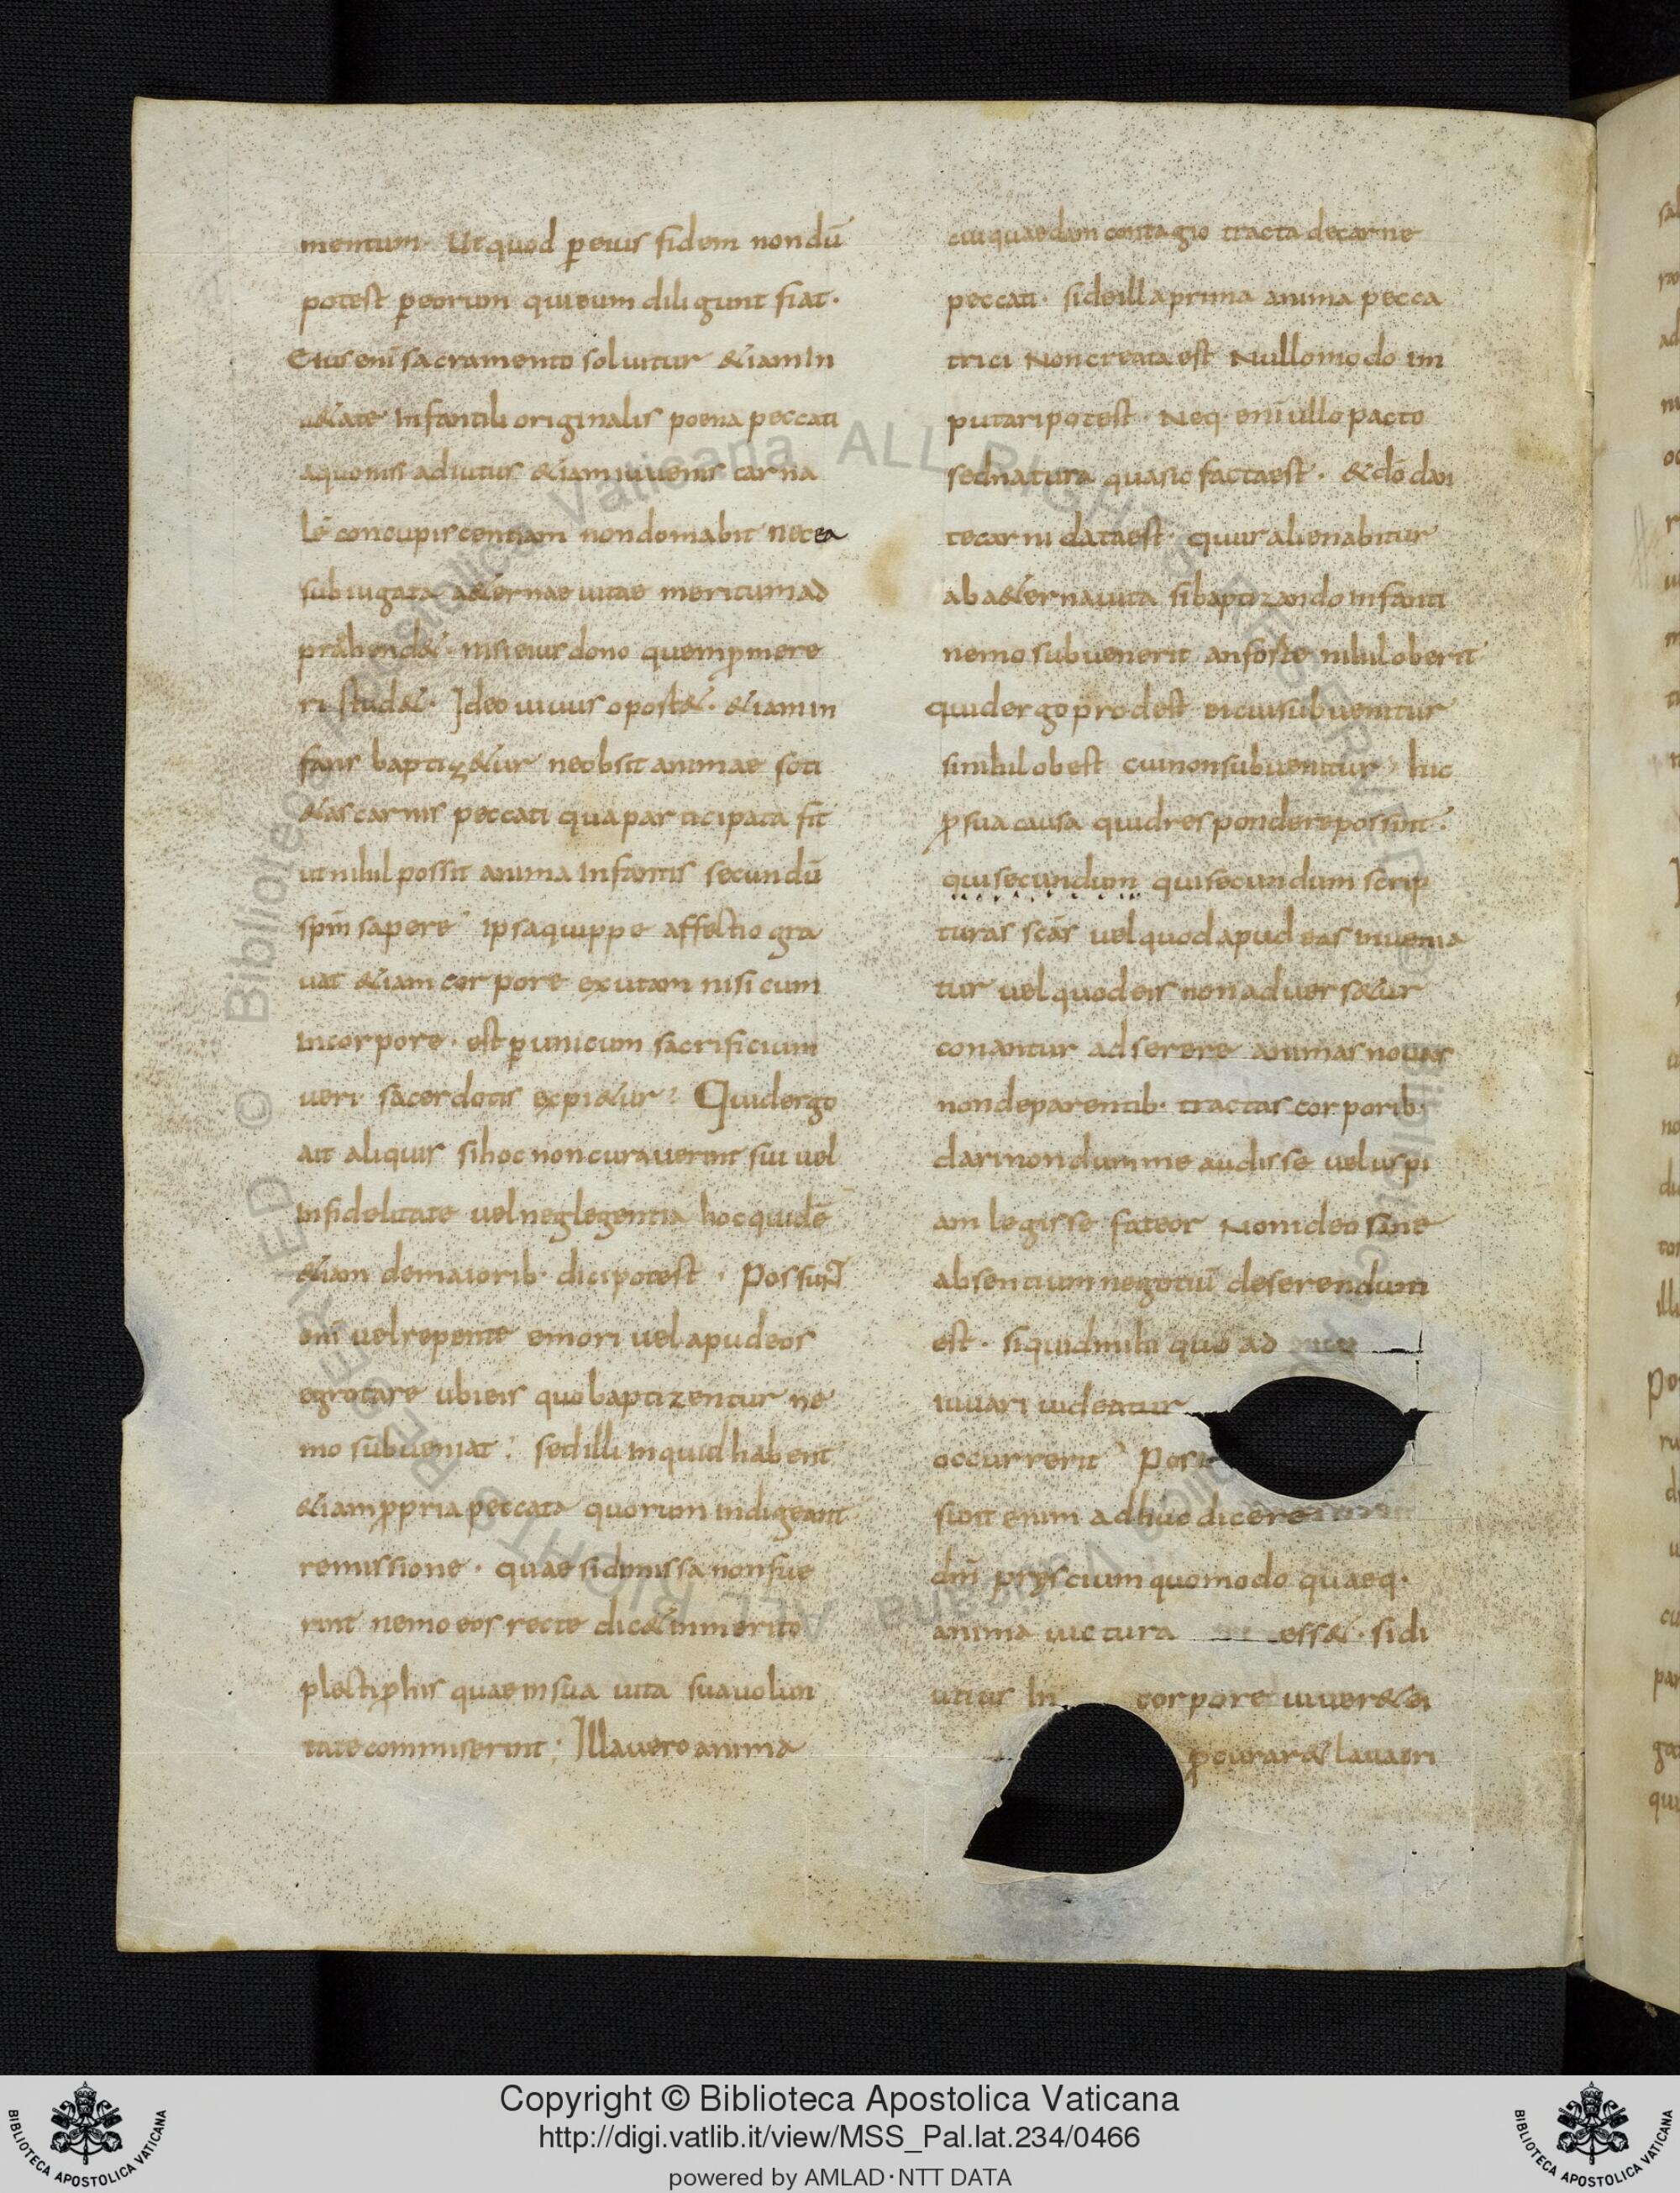 mentum. Ut quod p̄ eius fidem nondū
potest p̄ eorum qui eum diligunt fiat.
Eius eni᷃ sacramento soluitur &iam In
a&ate Infantili originalis poena peccati
a quo nisi adiutus &iam iuuenis carna
lē concupiscentiam non domabit nec ea
subiugata a&ernae uitae meritum ad
prahend&. nisi eius dono quem p̱mere
ri stud&. Ideo uiuus oport&. &iam in
fans baptiz&ur ne obsit animae soci
&as carnis peccati qua participata fit
ut nihil possit anima Infantis secundū
spm̄ sapere? ipsa quippe affectio gra
uat &iam corpore exutam nisi cum
In corpore. est p̄ unicum sacrificium
ueri sacerdotis expi&ur? Quid ergo
ait aliquis si hoc non curauerint sui uel
Infidelitate uel neglegentia hoc quidē
&iam de maiorib· dici potest. Possunt
eni᷃ uel repente emori uel apud eos
egrotare ubi eis quo baptizentur ne
mo subueniat? sed illi inquid habent
&iam p̱pria peccata quorum indigeant
remissione. quae si dimissa non fue
rint nemo eos recte dic& inmerito
plecti p̱ his quae in sua uita sua uolun
tate commiserint; Illa uero anima
cui quaedam contagio tracta de carne
peccati. si de illa prima anima pecca
trici Non creata est Nullo modo im
putari potest. Neq· eni᷃ ullo pacto
sed natura qua sic facta est. & dō dan
te carni data est. quur alienabitur
ab a&erna uita si baptizando Infanti
nemo subuenerit an forte nihil oberit
quid ergo prodest ei cui subuenitur
si nihil obest cui non subuenitur? hic
p̱ sua causa quid respondere possint.
qui secundum qui secundum scrip
turas scās uel quod apud eas inuenia
tur uel quod eis non aduers&ur
conantur adserere animas nouas
non de parentib· tractas corporib·
dari nondum me audisse uel uspi
am legisse fateor Non ideo sane
absentium negotiū deserendum
est. si quid mihi quo ad
iuuari uideatur
occurrerit? Pos
sunt enim adhuc dicere
dm̄ p̱scium quomodo quaeq·
anima uictura ess&. si di
utius In corpore uiuer& ei
p̱curar& lauacri
Copyright © Biblioteca Apostolica Vaticana
http://digi.vatlib.it/view/MSS_Pal.lat.234/0466
powered by AMLAD·NTT DATA